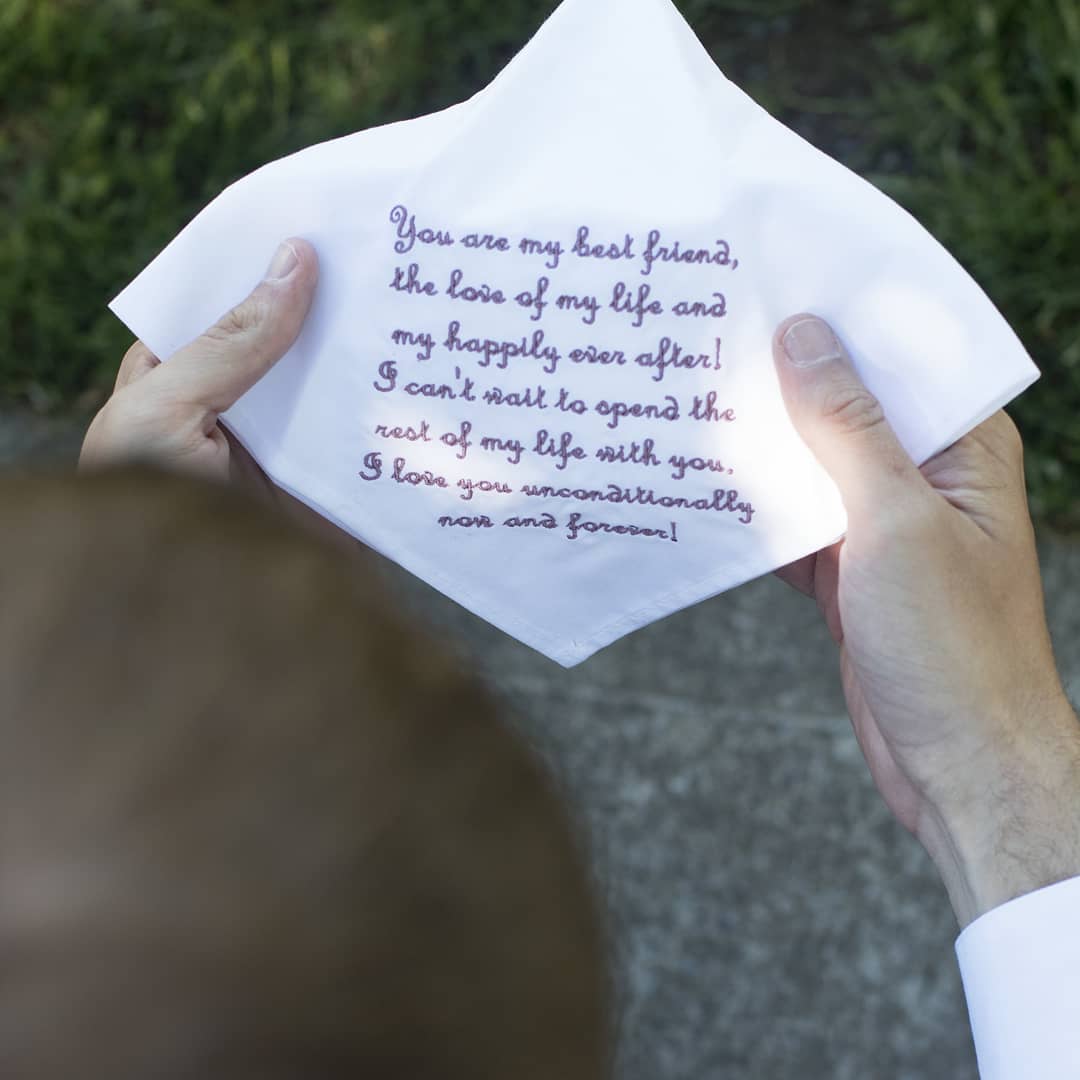 You are my best friend,
the love of my life and
my happily ever after!
I can't wait to spend the
rest of my life with you.
I love you unconditionally
now and forever!